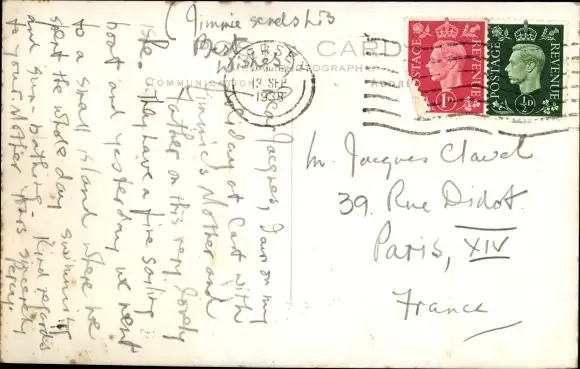 Jimmie sends his
Best
wishes
CARD
PHOTOGRAPH
COMMUNICATION
ADDRESS
POSTAGE REVENUE
1D
POSTAGE REVENUE
½D
Dear Jacques, I am on my
holiday at East with
Jimmie's Mother and
Father on this very lovely
isle. They have a fine sailing
boat and yesterday we went
to a small island where we
spent the whole day swimming
and sun-bathing. Kind regards
to your Mother Yours sincerely
Percy.
M. Jacques Clavel
39. Rue Didot.
Paris, XIV
France